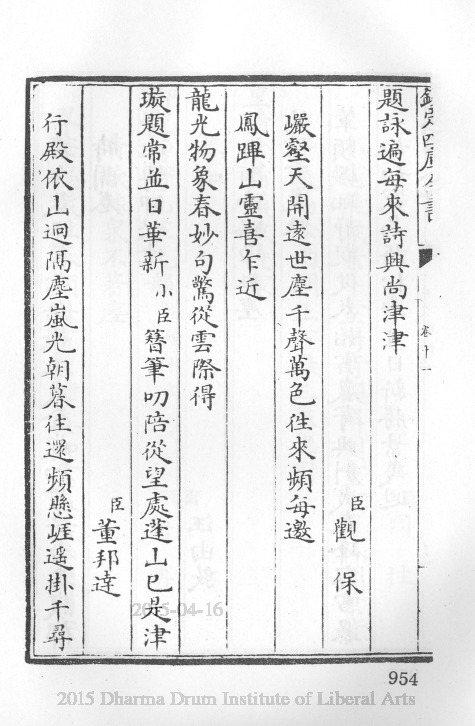 欽定四庫全書
卷十一
題詠遍每來詩興尚津津
臣觀保
巖壑天開遠世塵千聲萬色徃來頻每邀
鳳蹕山靈喜乍近
龍光物象春妙句驚從雲際得
璇題常並日華新小臣簪筆叨陪從望處蓬山已是津
臣董邦達
行殿依山迥隔塵嵐光朝暮往還頻懸崖遥掛千尋
2015-04-16
954
2015 Dharma Drum Institute of Liberal Arts